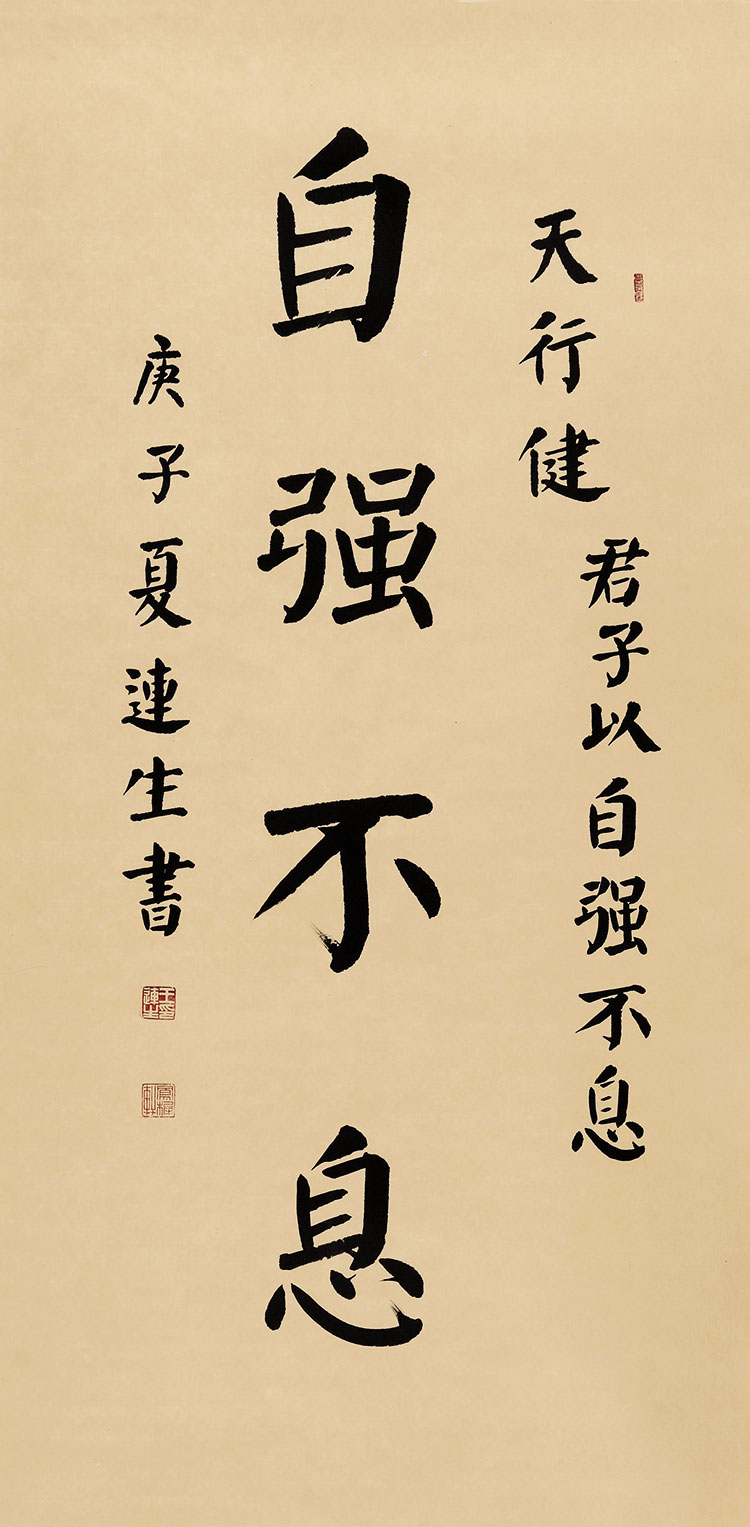 天行健
君子以自强不息
自强不息
庚子夏連生書